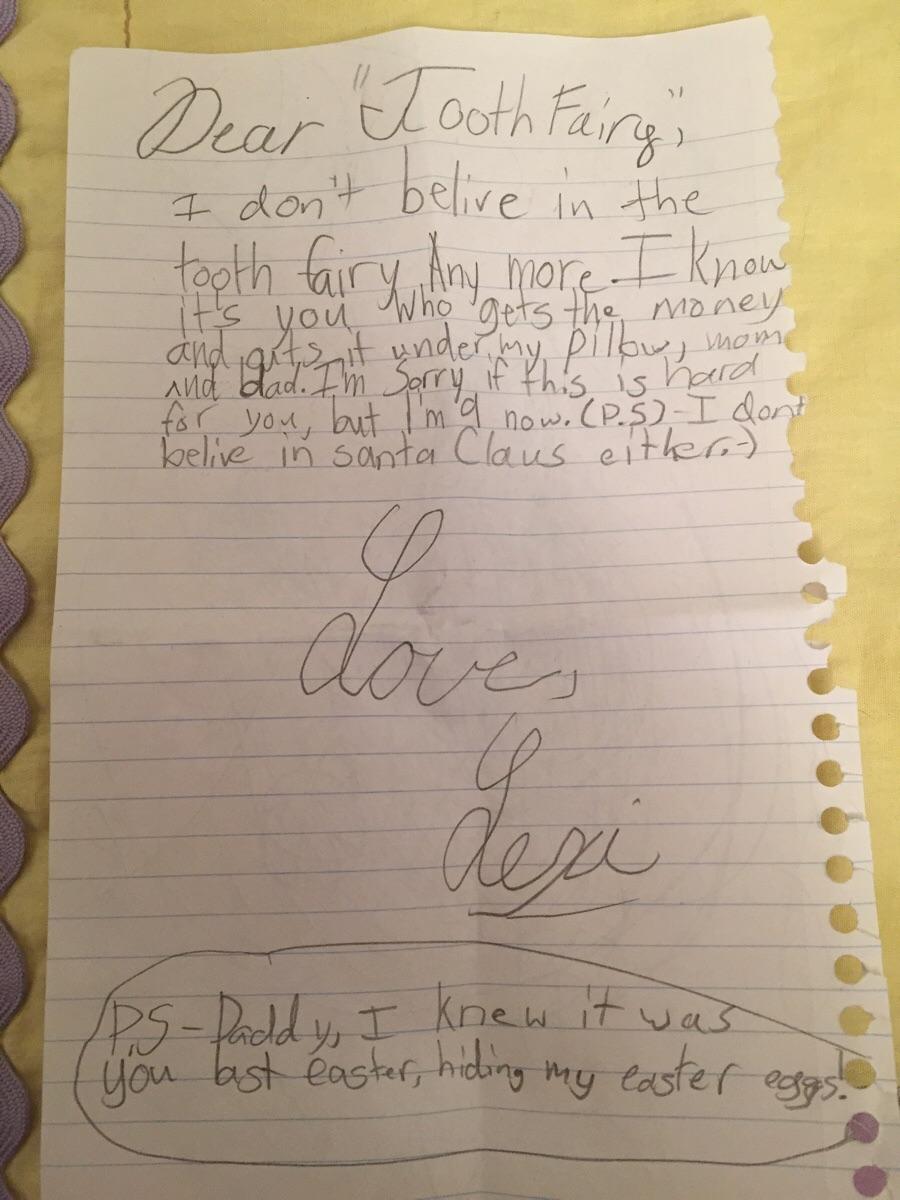 Dear "Tooth Fairy,"
I don't belive in the
tooth fairy Any more. I know
it's you who gets the money
and puts it under my pillow, mom
and dad. I'm Sorry if this is hard
for you, but I'm 9 now. (P.S) - I dont
belive in santa Claus either. :-)
Love,
Lexi
P.S - Daddy, I knew it was
you last easter, hiding my easter eggs!